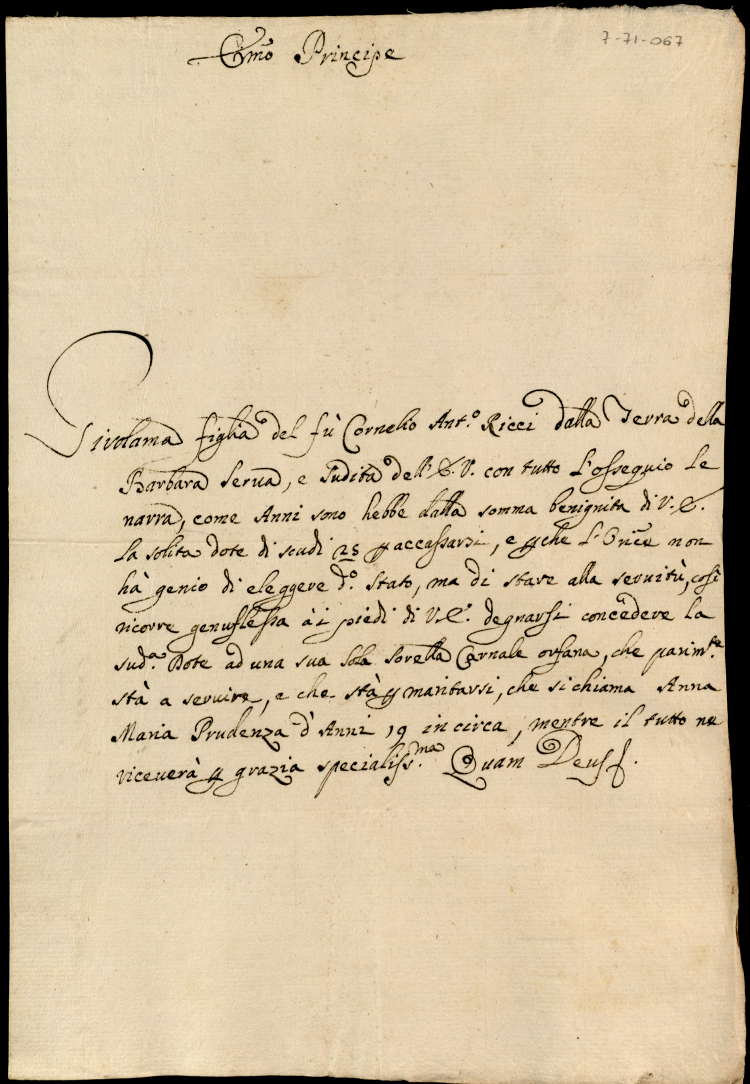 7-71-067
Ecc.mo Principe
Girolama figlia del fù Cornelio Ant.o Ricci dalla Terra della
Barbara Serua, e Sudita dell'E.V. con tutto l'ossequio le
narra, come Anni sono hebbe dalla somma benignita di V.E.
la solita dote di scudi 25 p accassarsi, e p che l'Orice non
hà genio di eleggere d.o Stato, ma di stare alla seruitù, così
ricorre genuflessa à i piedi di V.E. degnarsi concedere la
sud.a Dote ad una sua sola sorella Carnale orfana, che parim.te
stà a seruire, e che stà p maritarsi, che si chiama Anna
Maria Prudenza d'Anni 19 in circa, mentre il tutto ne
riceuerà p grazia specialiss.ma Quam Deus f.